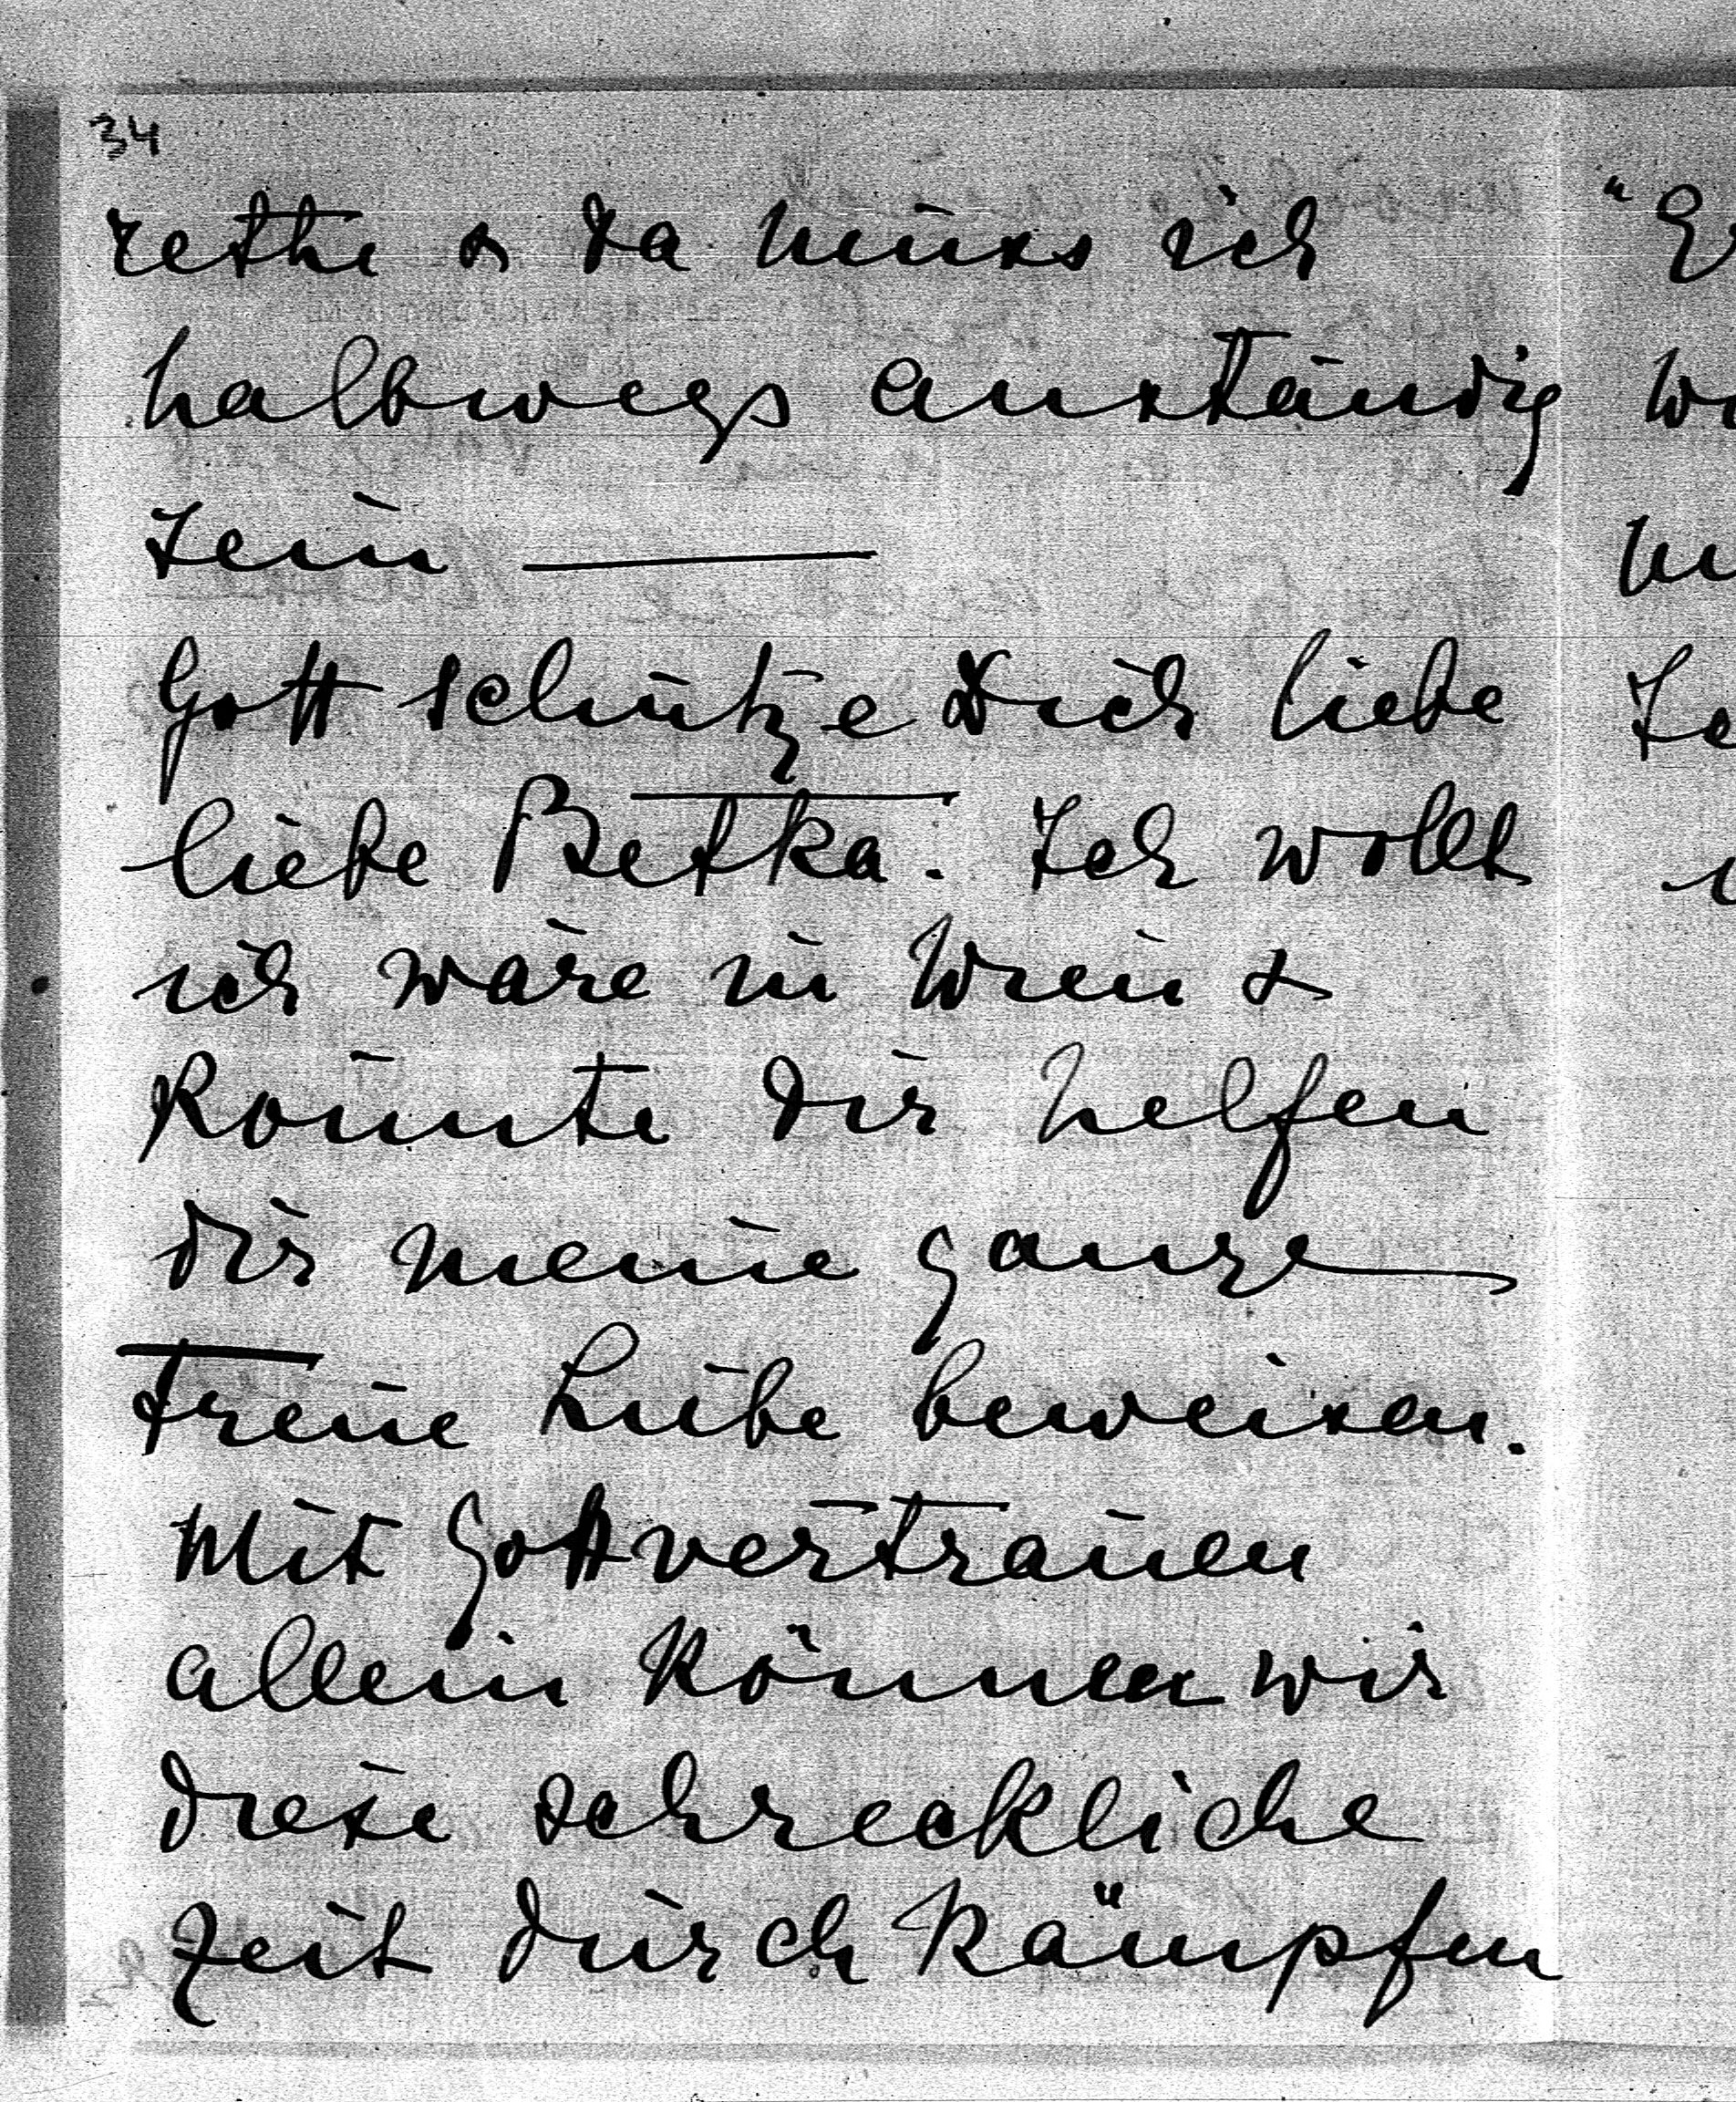 34
rethe & da muss ich
halbwegs anständig
sein ———
Gott schütze Dich liebe
liebe Betka. Ich wollt
ich wäre in Wien &
könnte Dir helfen
Dir meine ganze
treue Liebe beweisen.
Mit Gottvertrauen
allein können wir
diese schreckliche
Zeit durch kämpfen